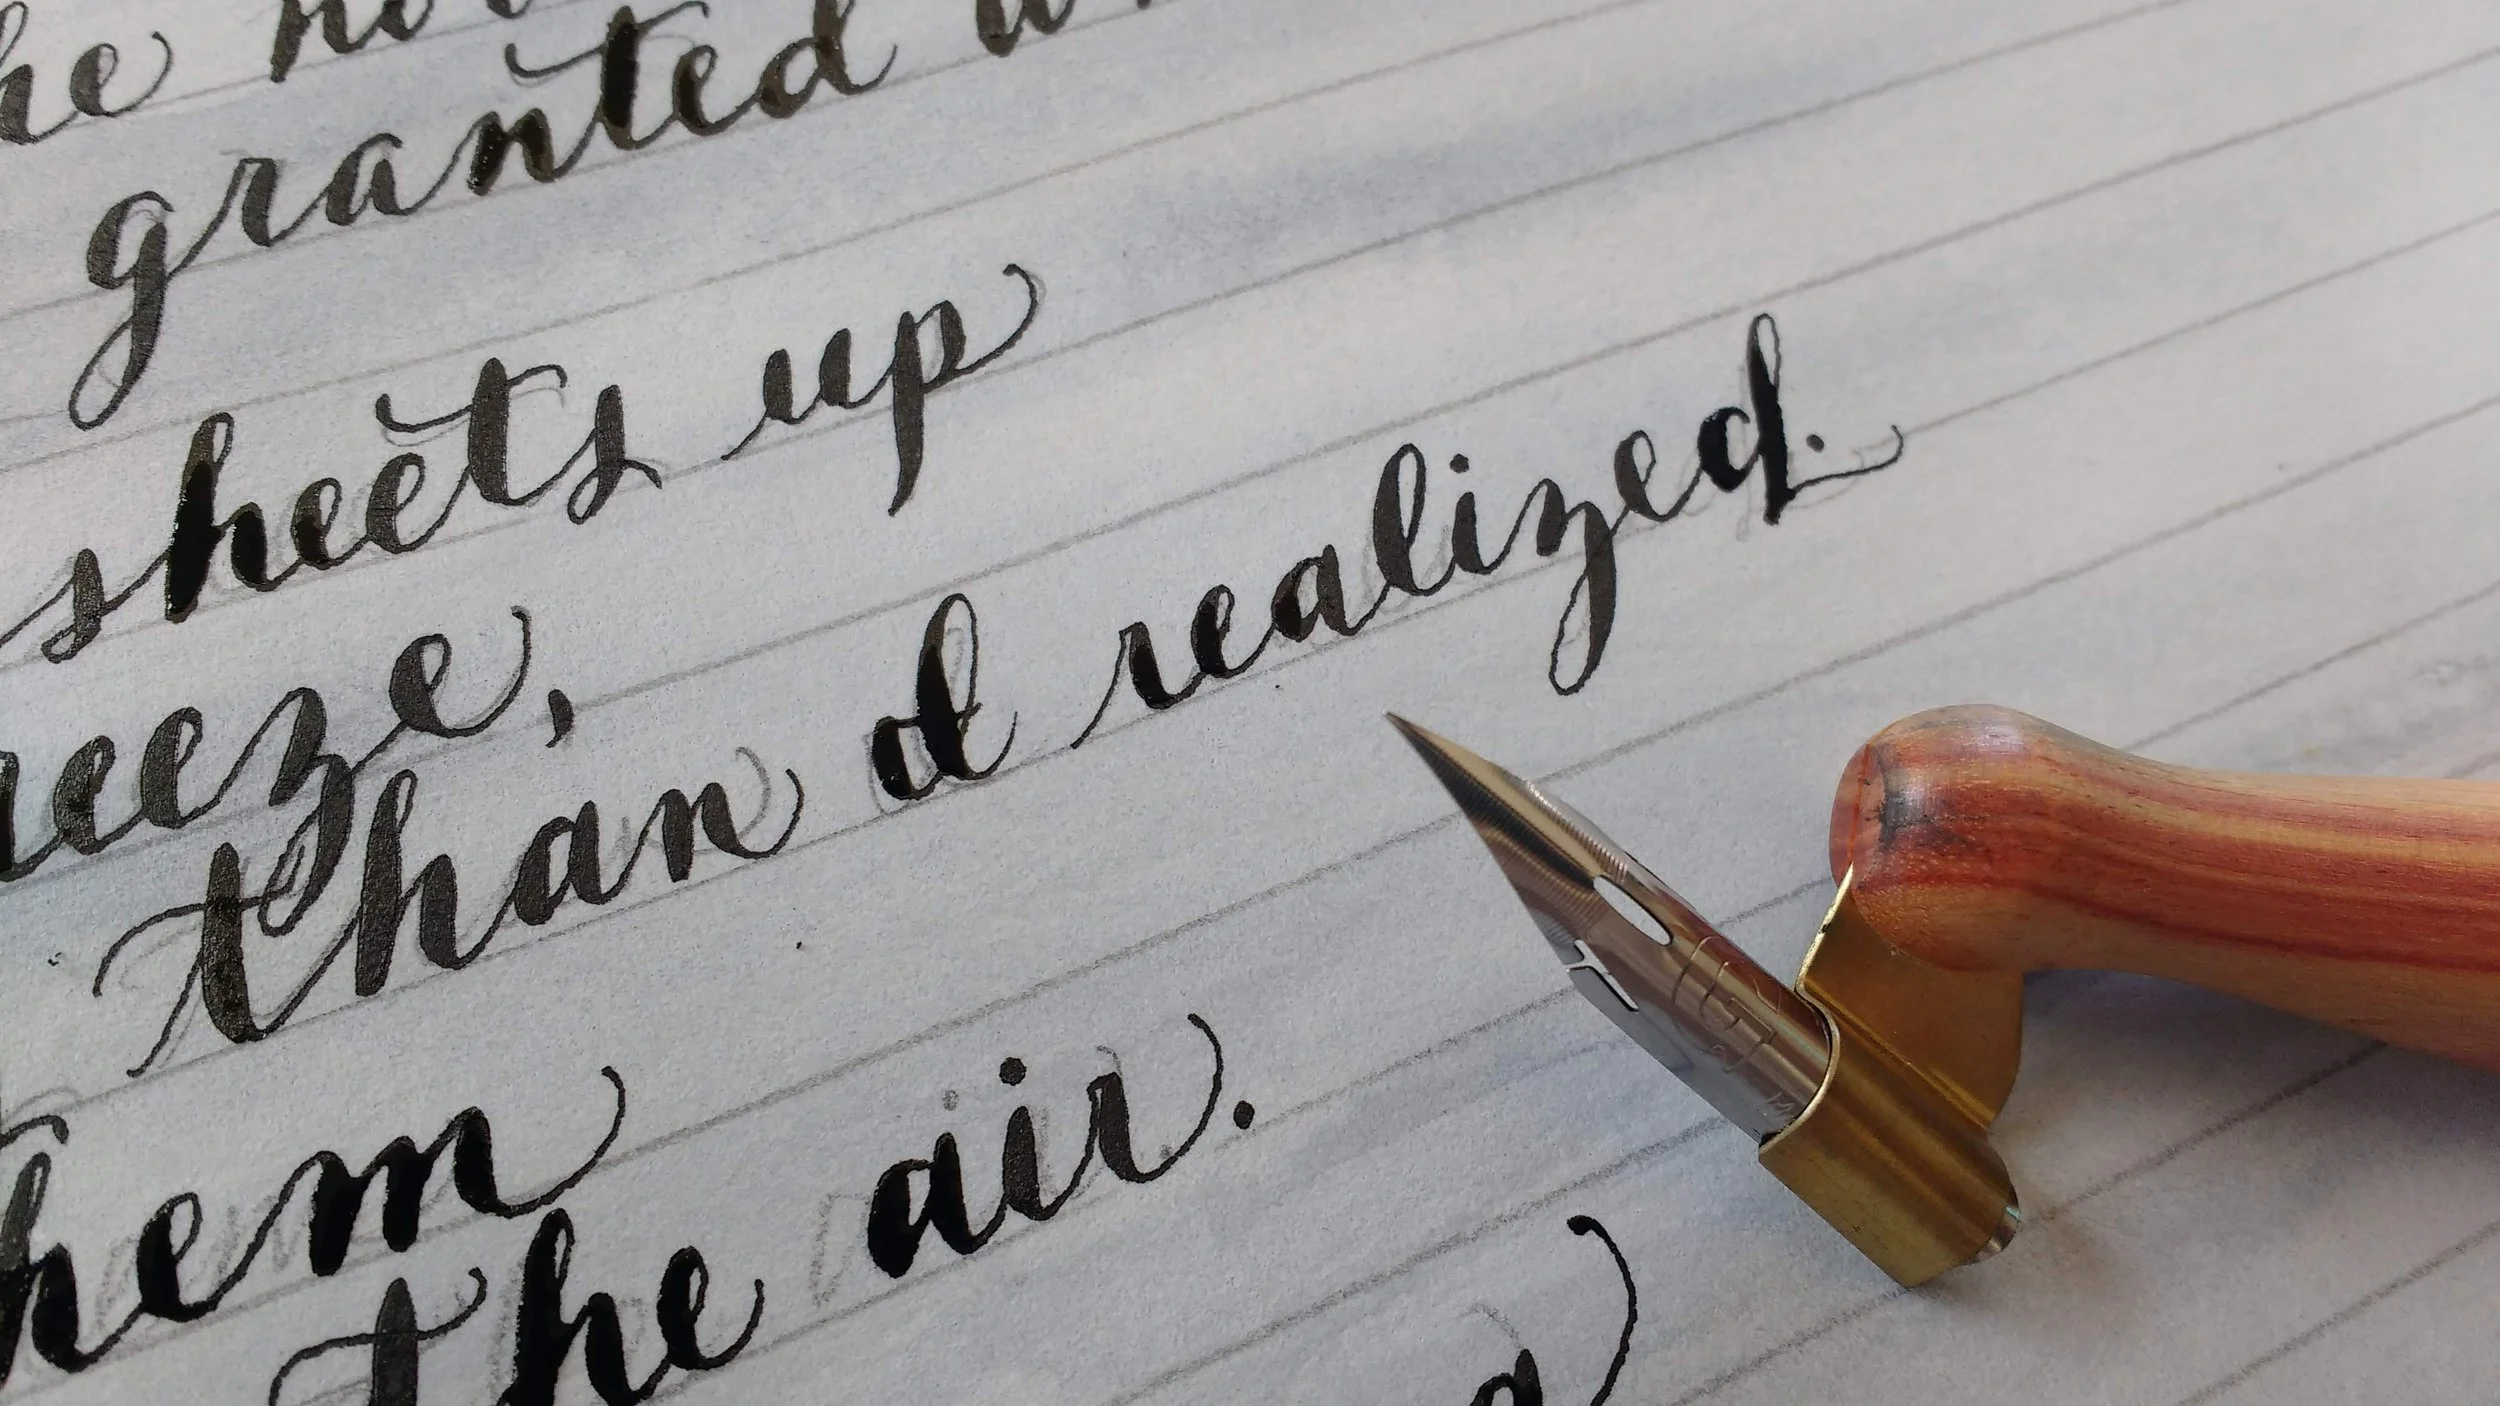 he
granted
sheets up
reeze,
than I realized.
hem
the air.